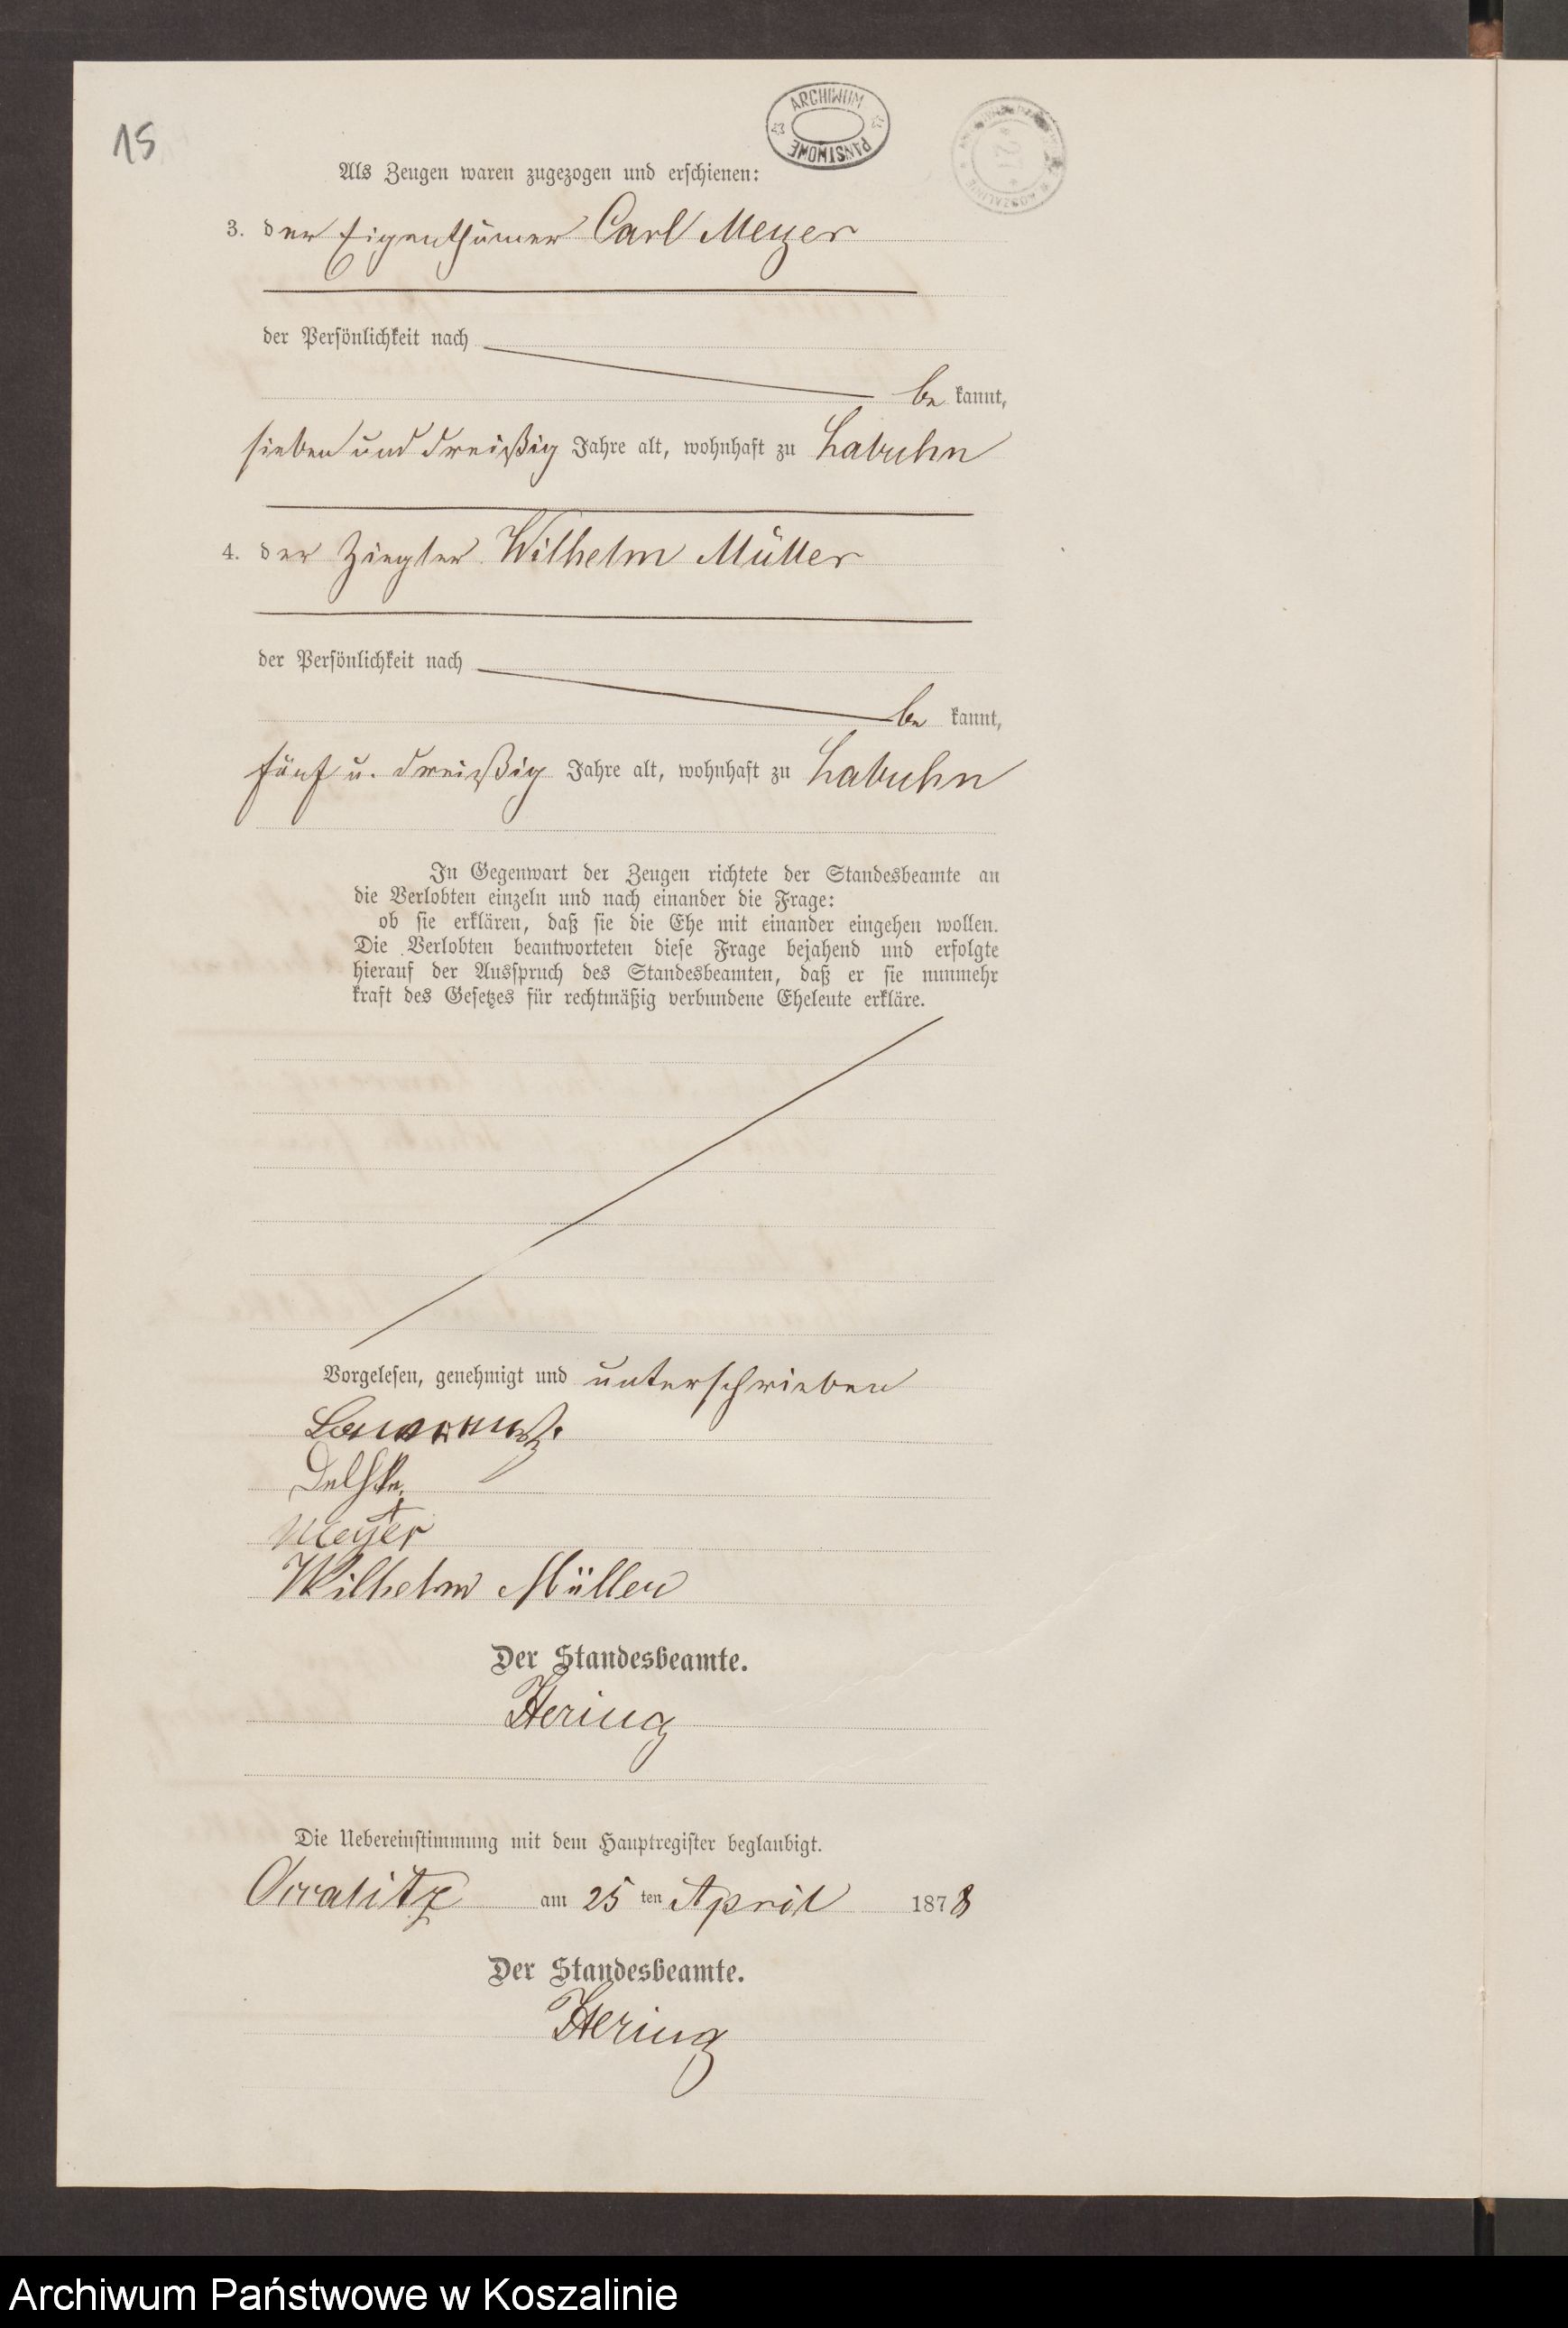 15
ARCHIWUM PAŃSTWOWE
Als Zeugen waren zugezogen und erschienen:
3. der Eigenthümer Carl Meyer
der Persönlichkeit nach
be kannt,
sieben und dreißig Jahre alt, wohnhaft zu Labuhn
4. der Ziegler Wilhelm Müller
der Persönlichkeit nach
be kannt,
fünf u. dreißig Jahre alt, wohnhaft zu Labuhn
In Gegenwart der Zeugen richtete der Standesbeamte an
die Verlobten einzeln und nach einander die Frage:
ob sie erklären, daß sie die Ehe mit einander eingehen wollen.
Die Verlobten beantworteten diese Frage bejahend und erfolgte
hierauf der Ausspruch des Standesbeamten, daß er sie nunmehr
kraft des Gesetzes für rechtmäßig verbundene Eheleute erkläre.
Vorgelesen, genehmigt und unterschrieben
Meyer
Wilhelm Müller
Der Standesbeamte.
Hering
Die Uebereinstimmung mit dem Hauptregister beglaubigt.
am 25 ten April 1878
Der Standesbeamte.
Hering
Archiwum Państwowe w Koszalinie